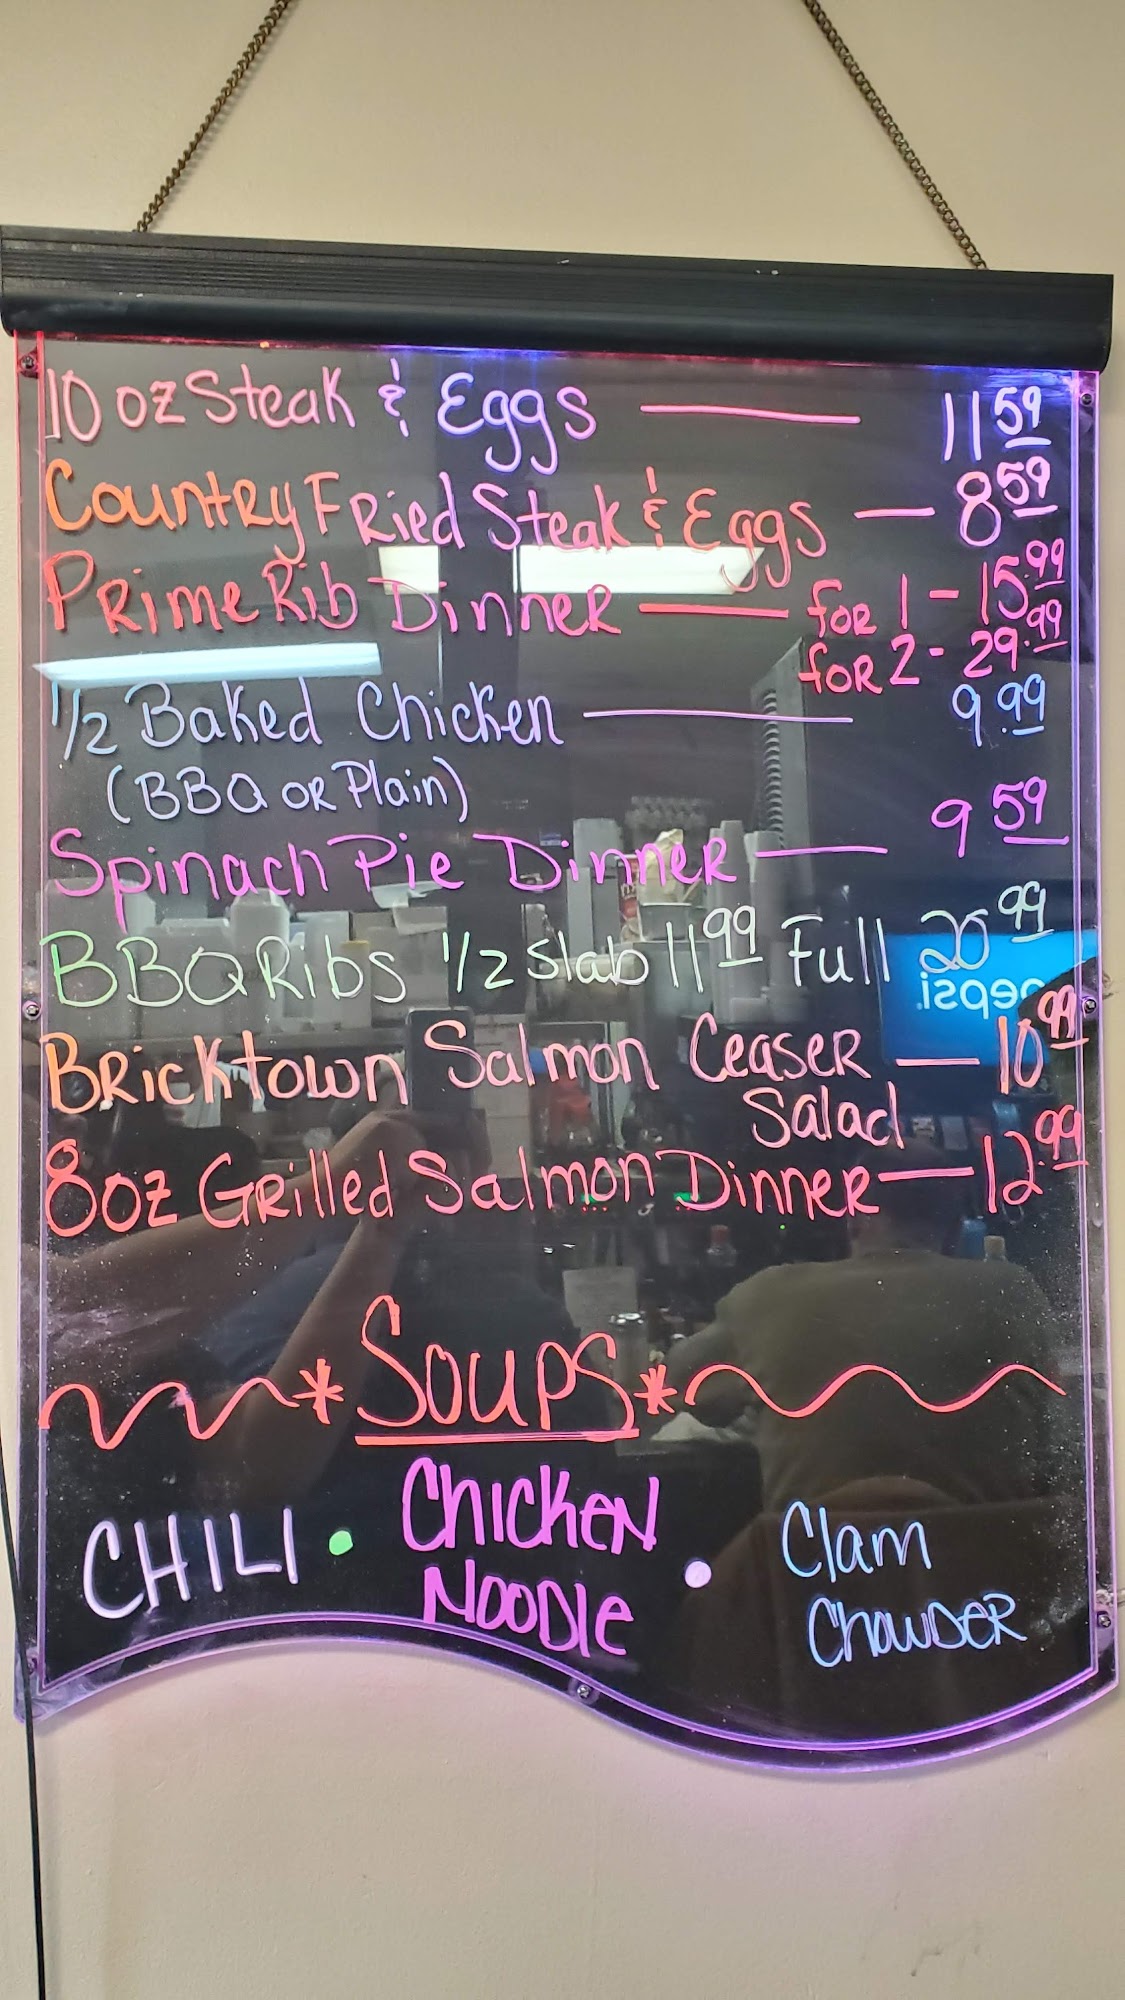 10 oz Steak & Eggs — 11 59
Country Fried Steak & Eggs — 8 59
Prime Rib Dinner — for 1 - 15.99
for 2 - 29.99
1/2 Baked Chicken — 9.99
(BBQ or Plain)
Spinach Pie Dinner — 9 59
BBQ Ribs 1/2 Slab 11 99 Full 20 99
pepsi.
Bricktown Salmon Ceaser — 10 99
Salad
8oz Grilled Salmon Dinner — 12.99
*Soups*
CHILI • Chicken Noodle • Clam Chowder